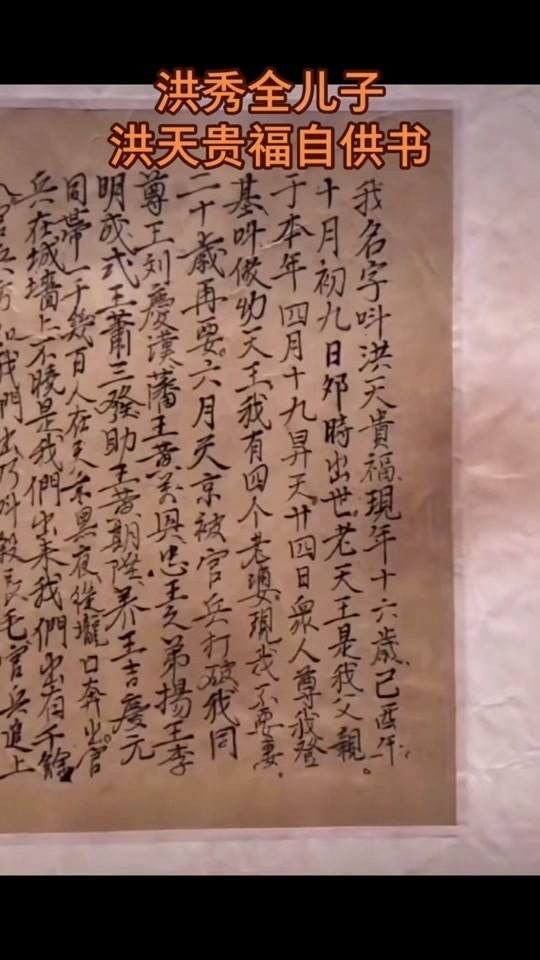 洪秀全儿子
洪天贵福自供书
我名字叫洪天貴福現年十六歲己酉年
十月初九日卯時出世老天王是我父親。
于本年四月十九昇天廿四日眾人尊我登
基叫做幼天王我有四个老婆現我不要妻.
二十歲再要。六月天京被官兵打破我同
尊王刘慶漢藩王黃 興忠王之弟揚王李
明成式王蕭三發助王黃期陞养王吉慶元
同帶一千幾百人在天京黑夜從壠口奔出。官
兵在城墻上不曉是我們出来我們出有千餘
官兵方知我們出乃叫殺長毛官兵追上